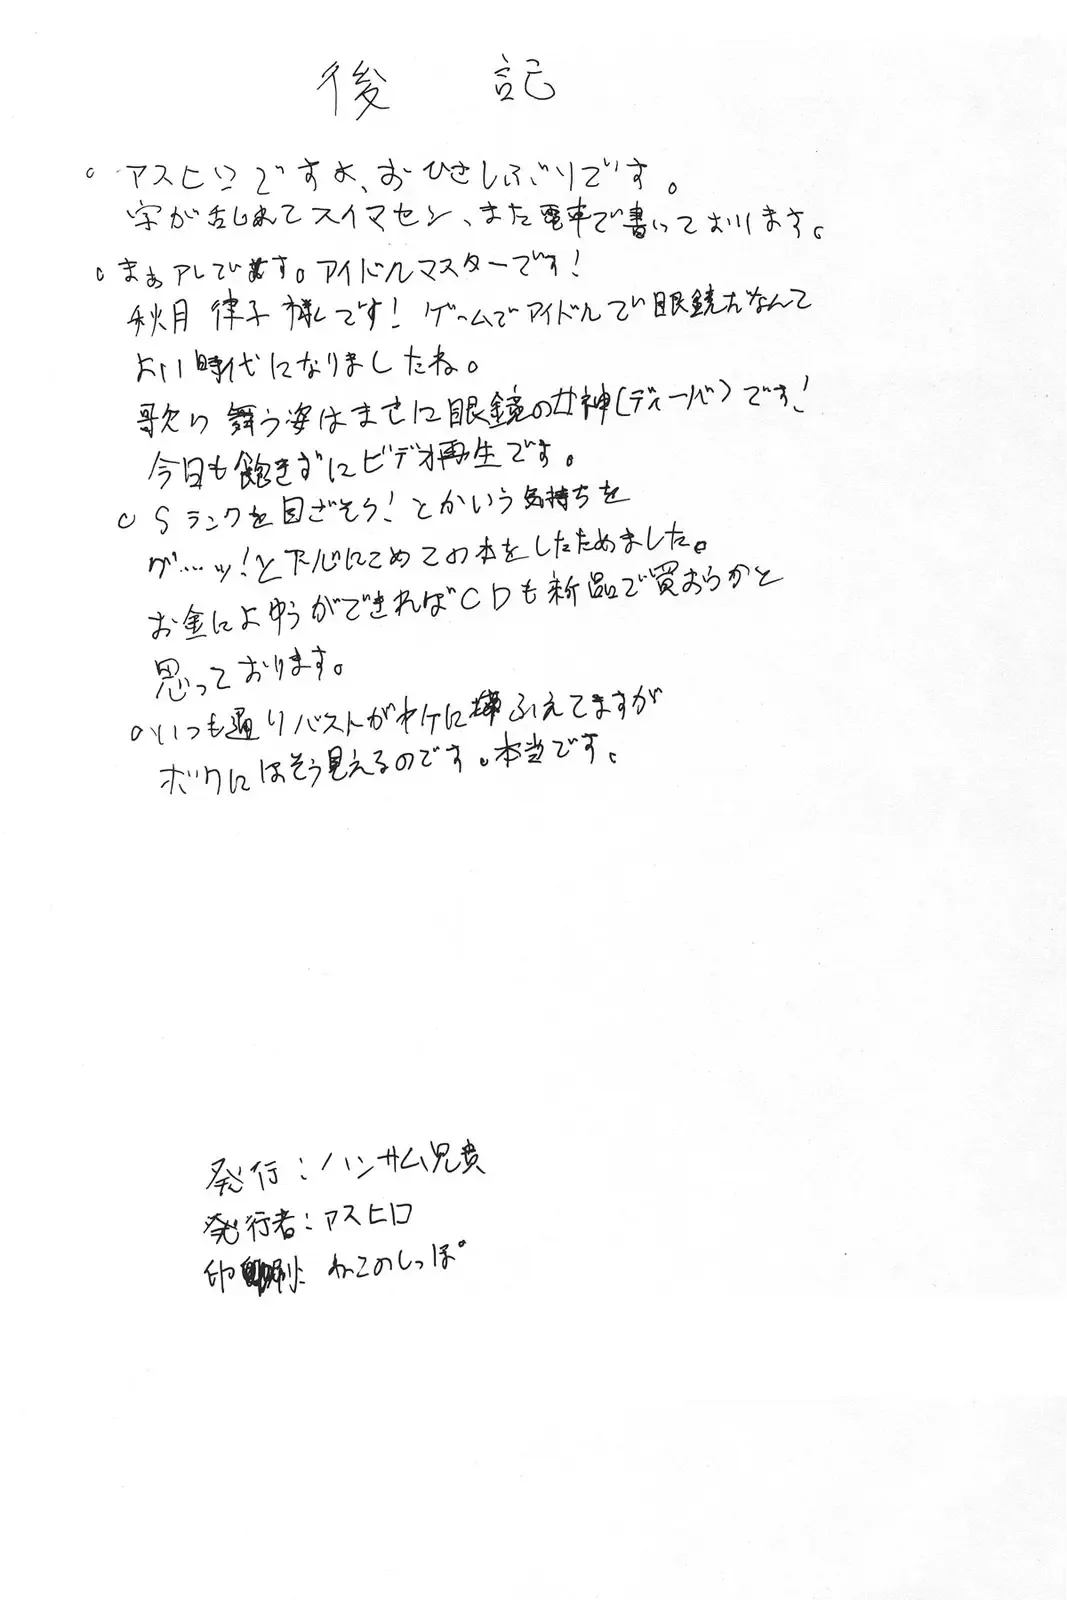 後 記
○ アスヒロですよ、おひさしぶりです。
字が乱れてスイマセン、また電車で書いております。
○ まぁアレです。アイドルマスターです!
秋月 律子様です! ゲームでアイドルで眼鏡だなんて
よい時代になりましたね。
歌い舞う姿はまさに眼鏡の女神(ディーバ)です!
今日も飽きずにビデオ再生です。
○ Sランクを目ざそう! とかいう気持ちを
グ…ッ!と下心にこめてこの本をしたためました。
お金によゆうができればCDも新品で買おうかと
思っております。
○ いつも通りバストがヤケにふえてますが
ボクにはそう見えるのです。本当です。
発行:ハンサム兄貴
発行者:アスヒロ
印刷:ねこのしっぽ